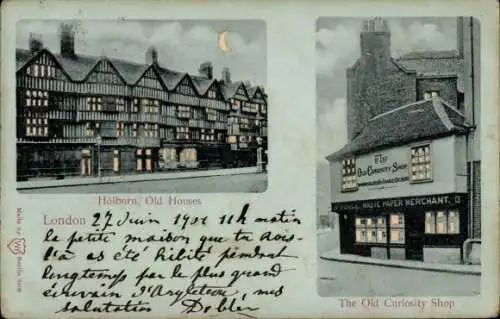 THE
OLD CURIOSITY SHOP
WASTE PAPER MERCHANT. 13
Holborn, Old Houses
London 27 Juin 1901 11h matin
la petite maison que tu vois
là a été habité pendent
longtemps par le plus grand
écrivain d'Angleterre, mes
salutation
The Old Curiosity Shop
Made by
Berlin